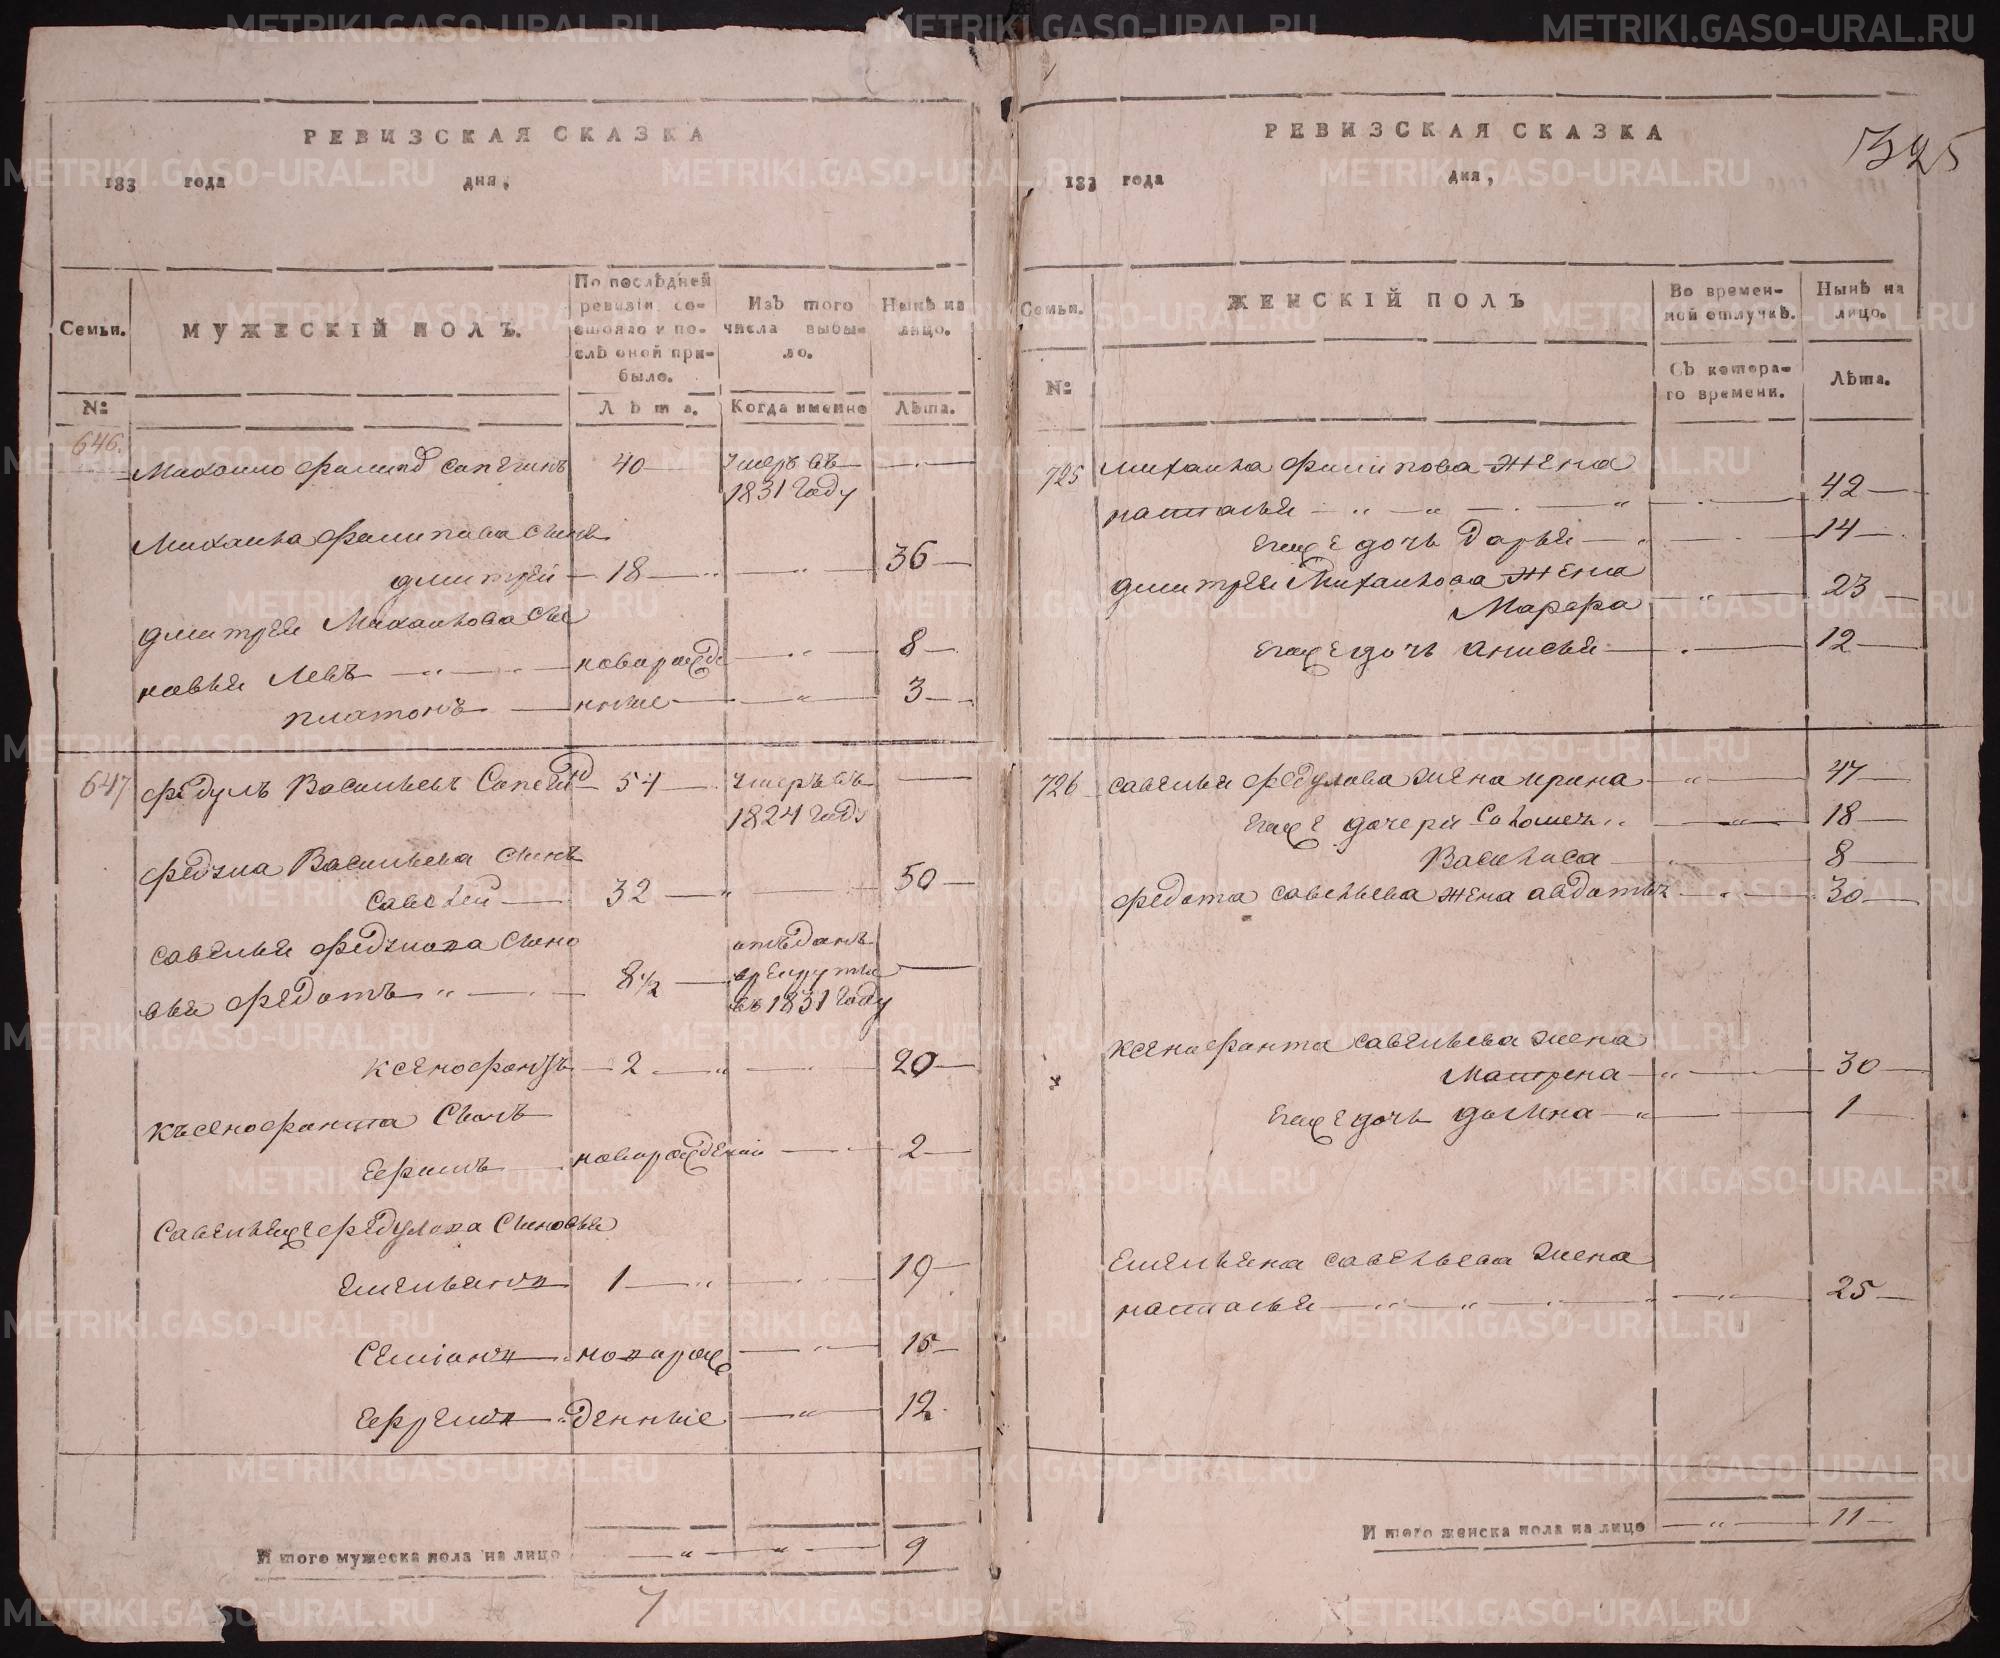 РЕВИЗСКАЯ СКАЗКА
183 года дня,
Семьи.
МУЖЕСКІЙ ПОЛЪ.
По послѣдней ревизіи состояло и послѣ оной прибыло.
Изъ того числа выбыло.
Нынѣ на лицо.
№
Лѣта.
Когда именно
Лѣта.
646.
Михаило Филипов Сапегинъ 40 — умеръ въ —
1831 Году
Михаила Филипова Сынъ
Дмитрей — 18 — „ — „ — 36 —
Дмитрея Михаилова Сы
новья Левъ — „ — новорожде — „ — 8 —
Платонъ — нные — „ — 3 —
647 Федулъ Васильевъ Сапегин 54 — умеръ въ —
1824 Году
Федула Васильева Сынъ
Савелей — 32 — „ — 50 —
Савелья Федулова Сыно отъданъ
вья Федотъ „ — 8 1/2 — врекруты —
въ 1831 Году
Ксенофонтъ — 2 — „ — 20 —
Късенофонта Сынъ
Ефимъ — новорожденый — 2 —
Савелья еще Федулова Сыновья
Емельянъ 1 — „ — 19 —
Семіонъ — новорож — „ — 15 —
Ефремъ „ денные — „ — 12
И того мужеска пола на лицо — „ — „ — 9
7
РЕВИЗСКАЯ СКАЗКА
325
183 года дня,
Семьи.
ЖЕНСКІЙ ПОЛЪ
Во временной отлучкѣ.
Нынѣ на лицо.
№
Съ котораго времени.
Лѣта.
725 Михаила Филипова жена
Наталья — „ — „ — 42 —
еще дочь Дарья — 14 —
Дмитрея Михаилова жена
Марфа — „ — 23 —
еще дочь Анисья — 12 —
726 Савелья Федулова жена Ирина — „ — 47 —
еще дочери Соломея „ — „ — 18 —
Василиса — „ — 8 —
Федота Савельева жена Авдотья — „ — 30 —
Ксенофонта Савельева жена
Матрена — „ — 30 —
еще дочь Домна — „ — 1 —
Емельяна Савельева жена
Наталья — „ — „ — 25 —
И того женска пола на лицо — „ — 11 —
METRIKI.GASO-URAL.RU